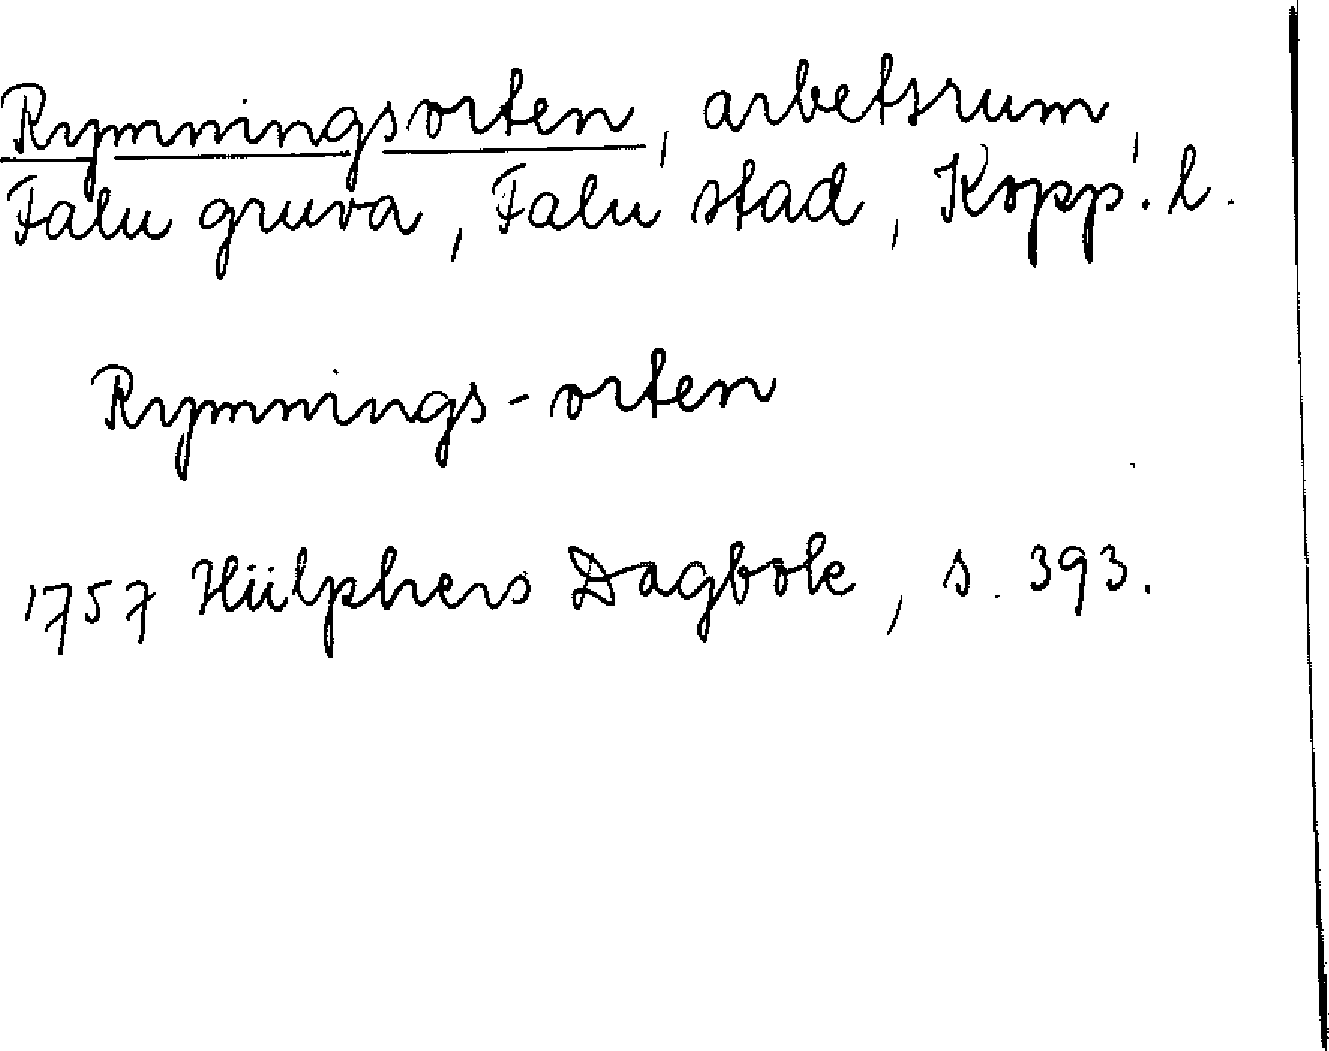 Rymningsorten, arbetsrum,
Falu gruva, Falu stad, Kopp. l.
Rymnings-orten
1757 Hülphers Dagbok, s. 393.